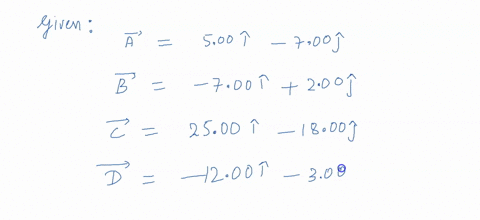 Given:
A⃗ = 5.00 î − 7.00 ĵ
B⃗ = −7.00 î + 2.00 ĵ
C⃗ = 25.00 î − 18.00 ĵ
D⃗ = −12.00 î − 3.00